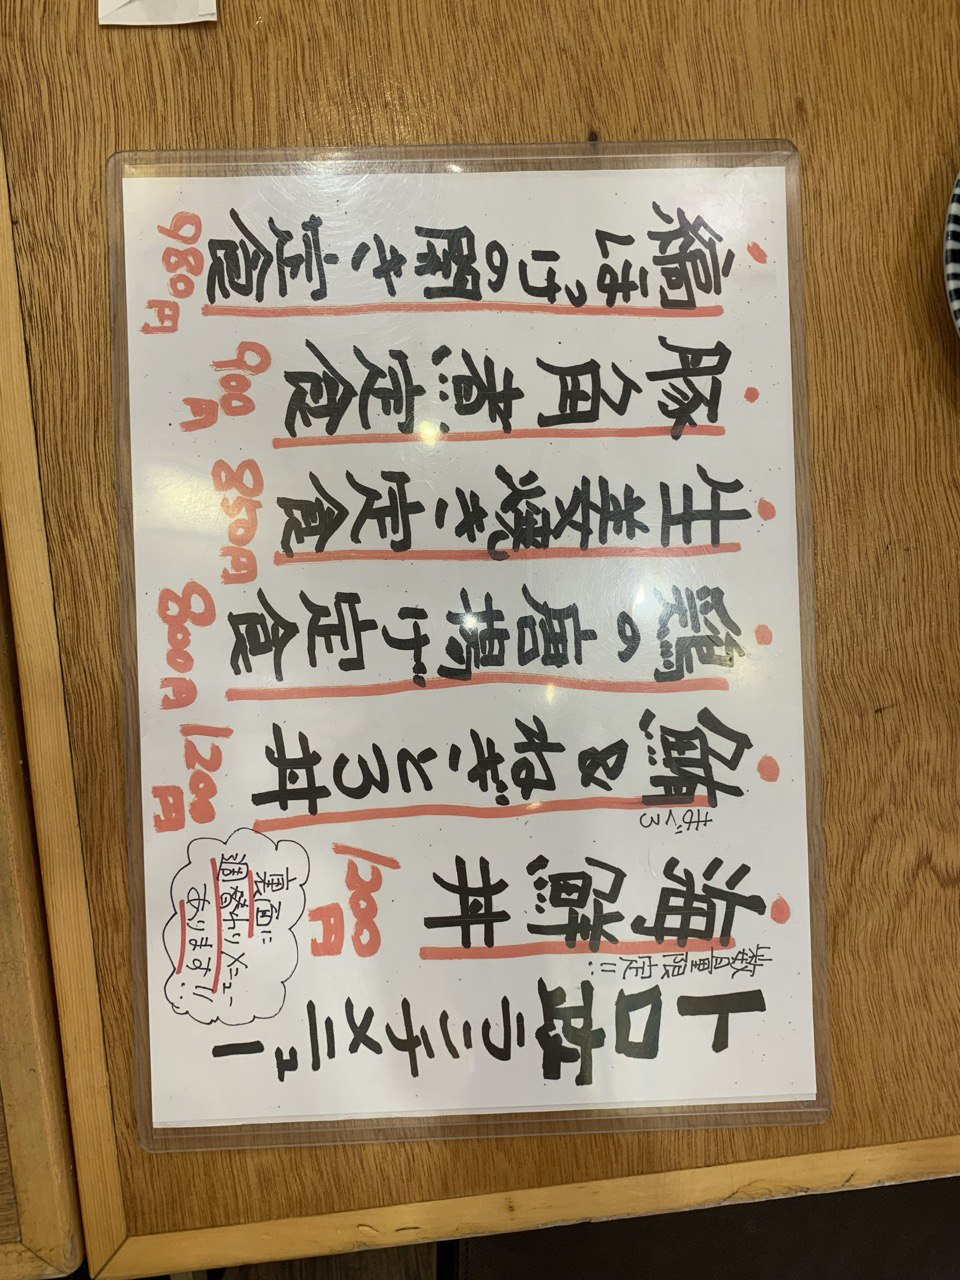 トロ政ランチメニュー
数量限定!!
海鮮丼 1300円
鮪&ねぎとろ丼 1200円
まぐろ
鶏の唐揚げ定食 800円
生姜焼き定食 850円
豚角煮定食 900円
縞ほっけの開き定食 980円
裏面に
週替わりメニュー
あります!!